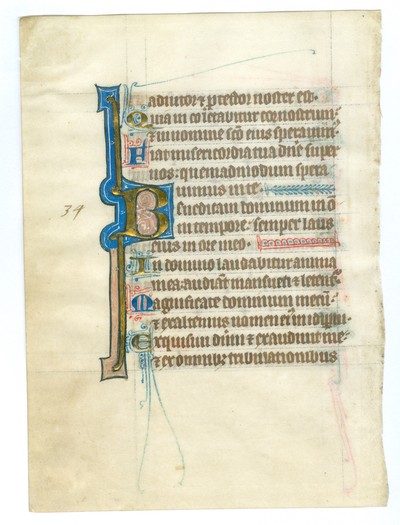 adiutor ⁊ ꝓtector noster est.
Quia in eo letabitur cor nostrum:
⁊ in nomine sc̄o eius sperauim᷒
Fiat misericordia tua dn̄e super
nos: quemadmodum spera
uimus in te.
Benedicam dominum in o
in tempore: semper laus
eius in ore meo.
In domino laudabitur anima
mea: audiant mansueti ⁊ leten᷒
Magnificate dominum mecū:
⁊ exaltemus nomen ei᷒ in idipm̄.
Exquisiui dn̄m ⁊ exaudiuit me
⁊ ex omnibꝫ tribulationibus
34